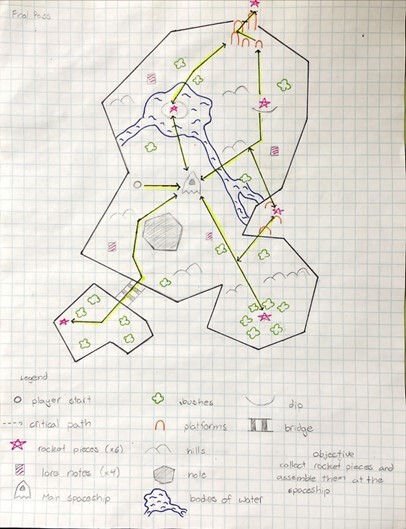 Final Pass
Legend
player start
critical path
rocket pieces (x6)
lore notes (x4)
Main spaceship
bushes
platforms
hills
hole
bodies of water
dip
bridge
objective
collect rocket pieces and
assemble them at the
spaceship